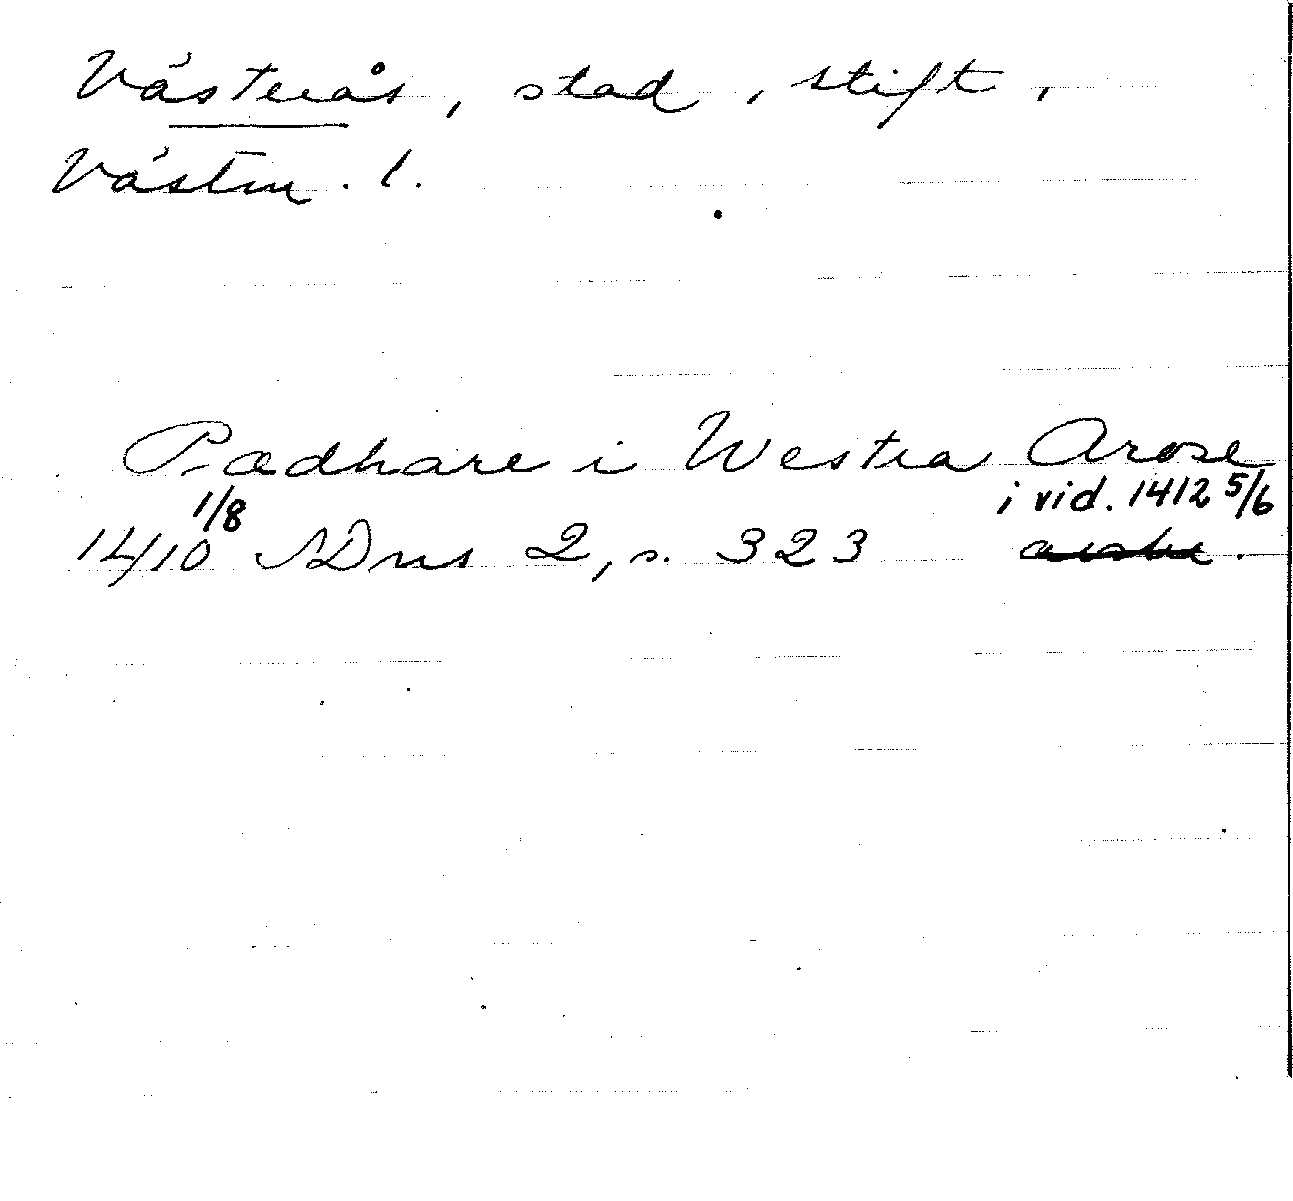 Västerås, stad, stift,
Västm. l.
Radhare i Westra Arose
1/8 i vid. 1412 5/6
1410 SDns 2, s. 323